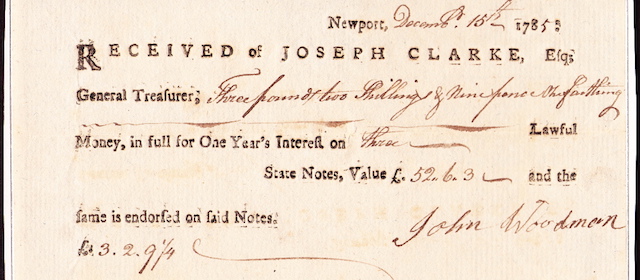 Newport, Decemb.r 15th 1785:
RECEIVED of JOSEPH CLARKE, Esq;
General Treasurer, Three pounds two Shillings & Nine pence One farthing
Lawful
Money, in full for One Year's Interest on Three
State Notes, Value £. 52.6.3 and the
same is endorsed on said Notes.
John Woodman
£. 3.2.9 1/4